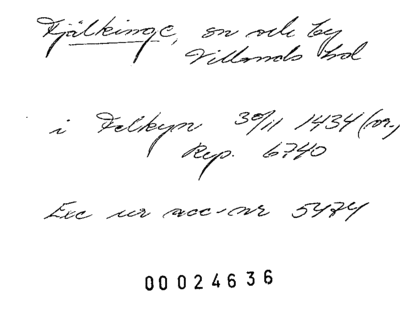 Fjälkinge, sn och by
Villands hd
i Felkyn 30/11 1434 (or.)
Rep. 6740
Exc ur acc-nr 5474
00024636